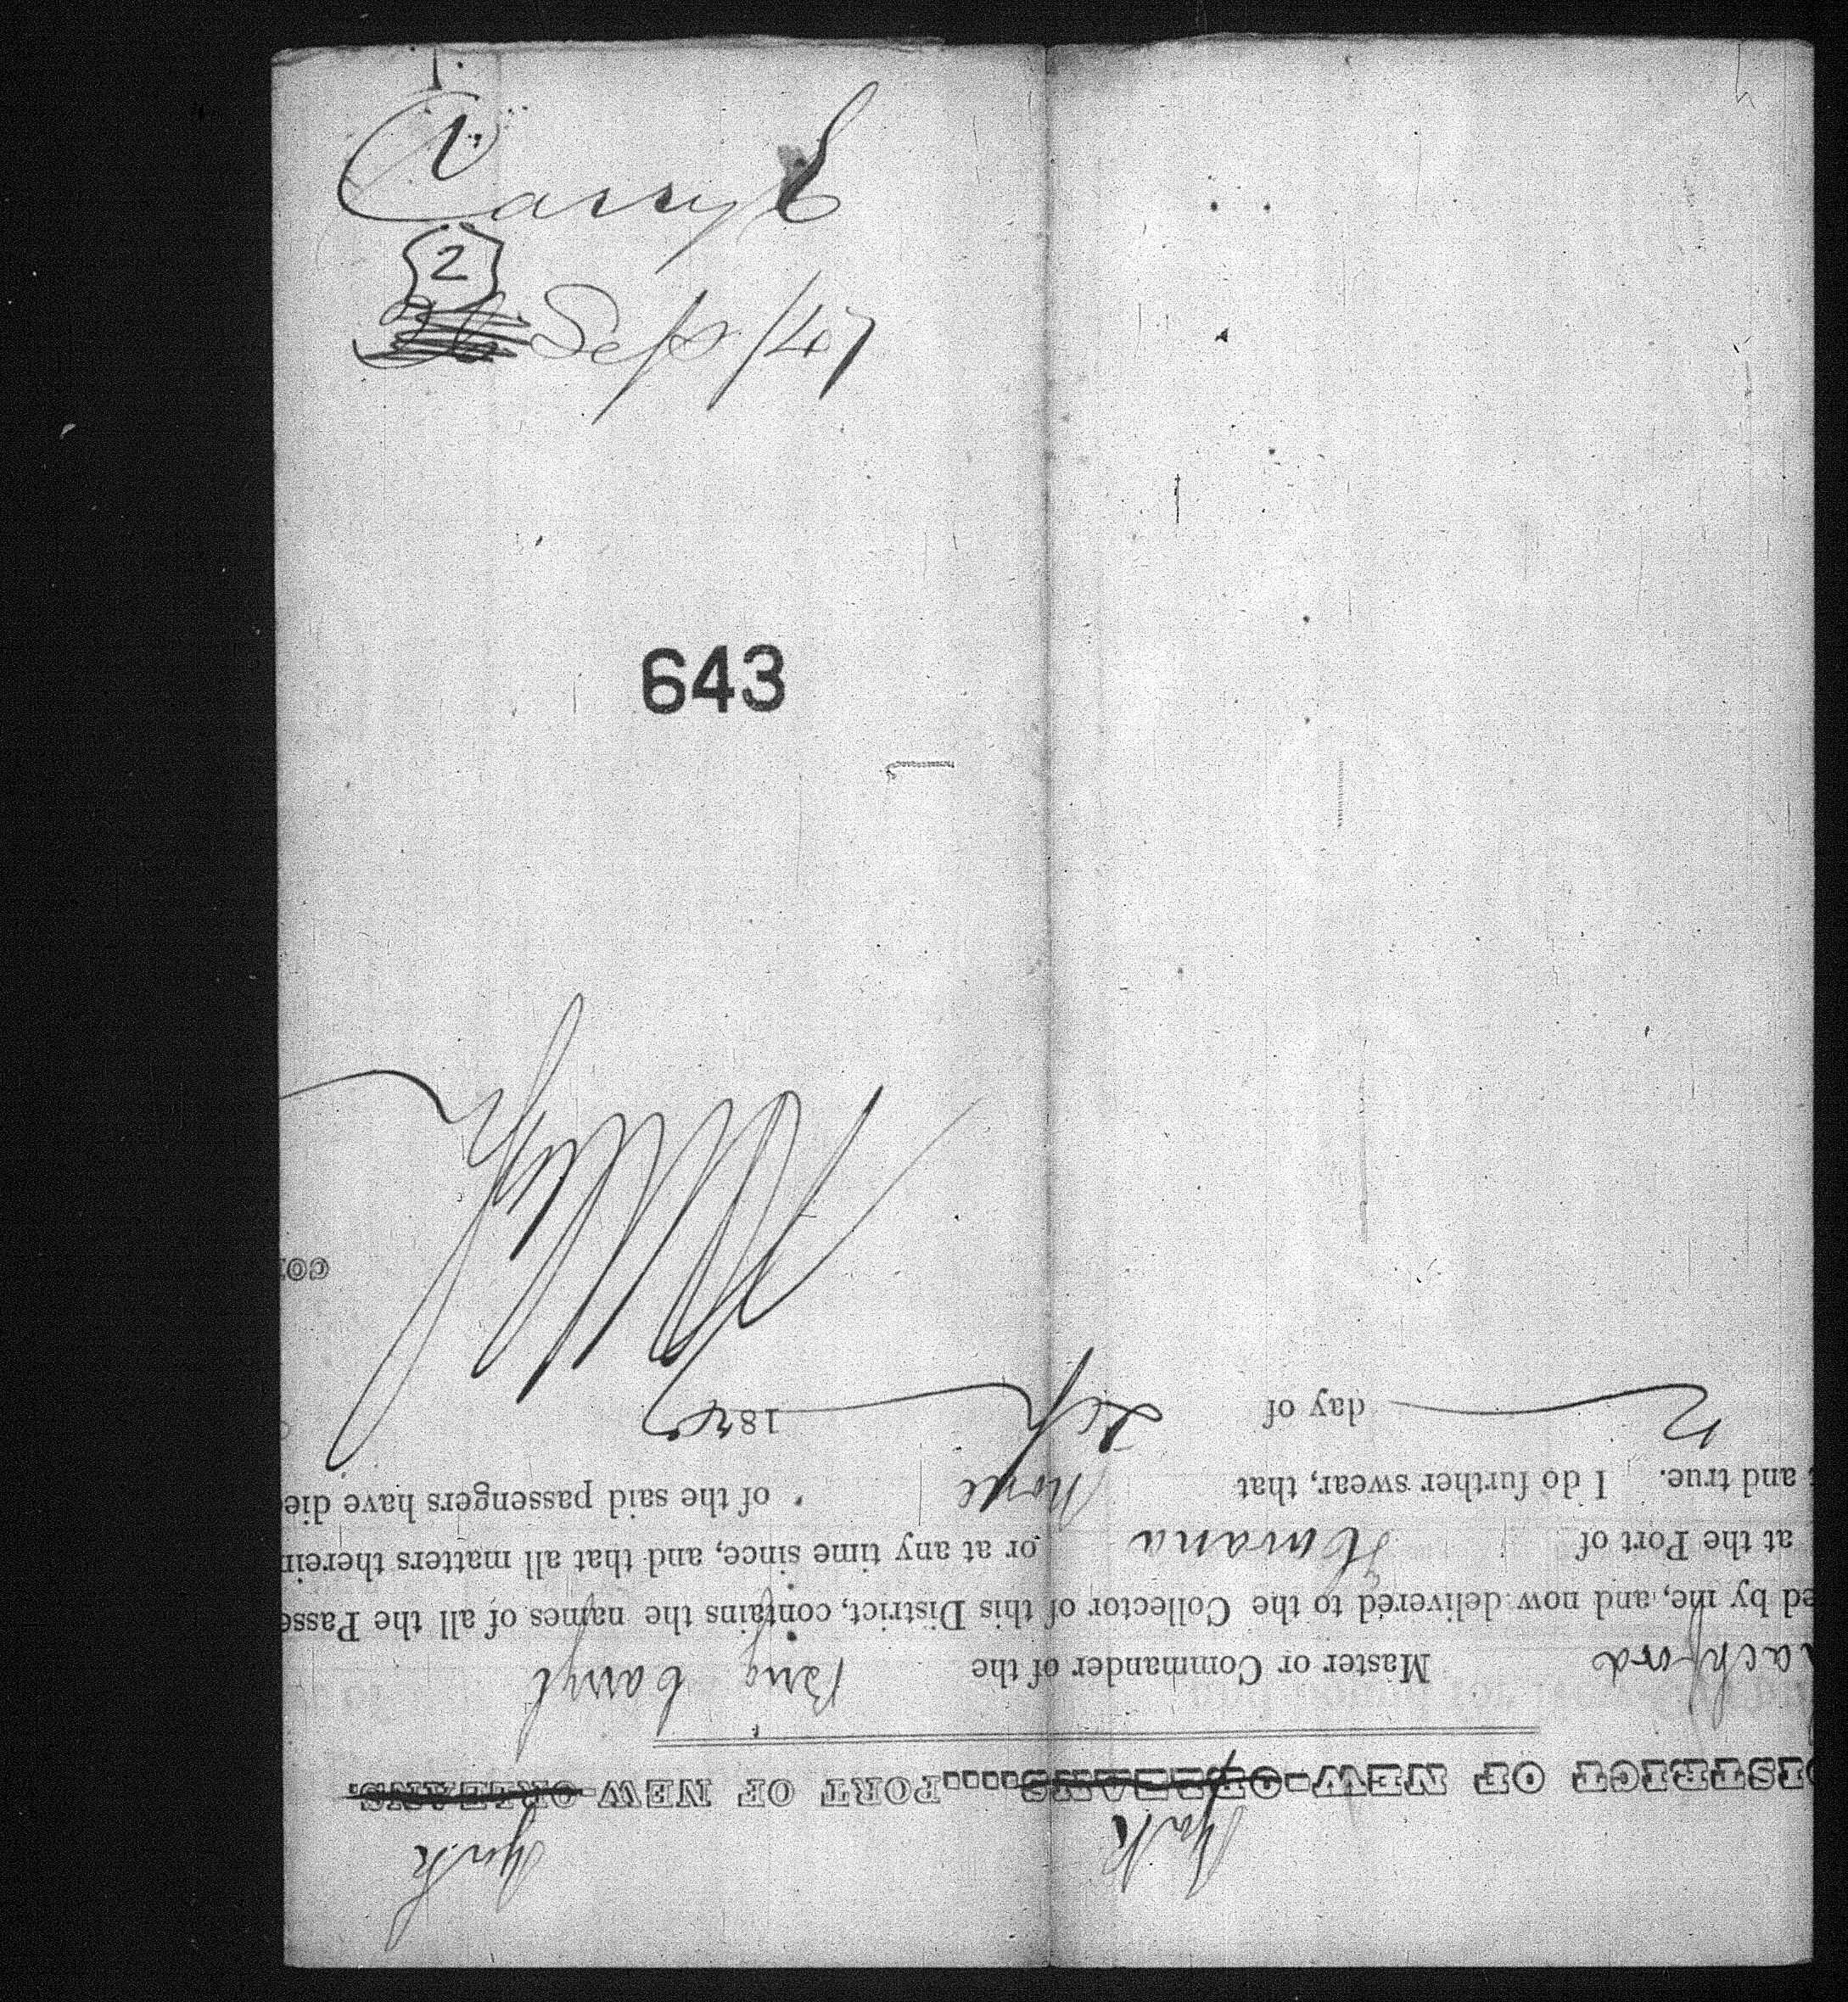 Carryl
2
Sep /47
643
ISTRICT OF NEW-ORLEANS.....PORT OF NEW-ORLEANS.
York York
Master or Commander of the Brig Carryl
ed by me, and now delivered to the Collector of this District, contains the names of all the Passe
at the Port of Havana or at any time since, and that all matters therein
and true. I do further swear, that none of the said passengers have die
2 day of Sep 184
COL